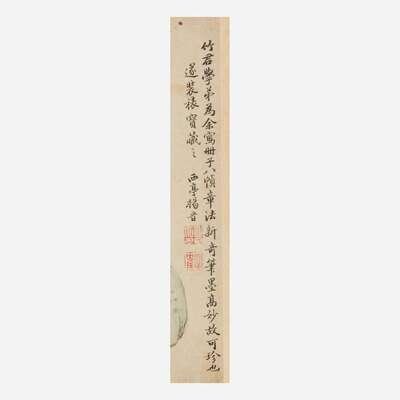 竹君學弟為余寫冊子八幀章法新奇筆墨高妙故可珍也
遂裝裱寶藏之
西亭楊晉